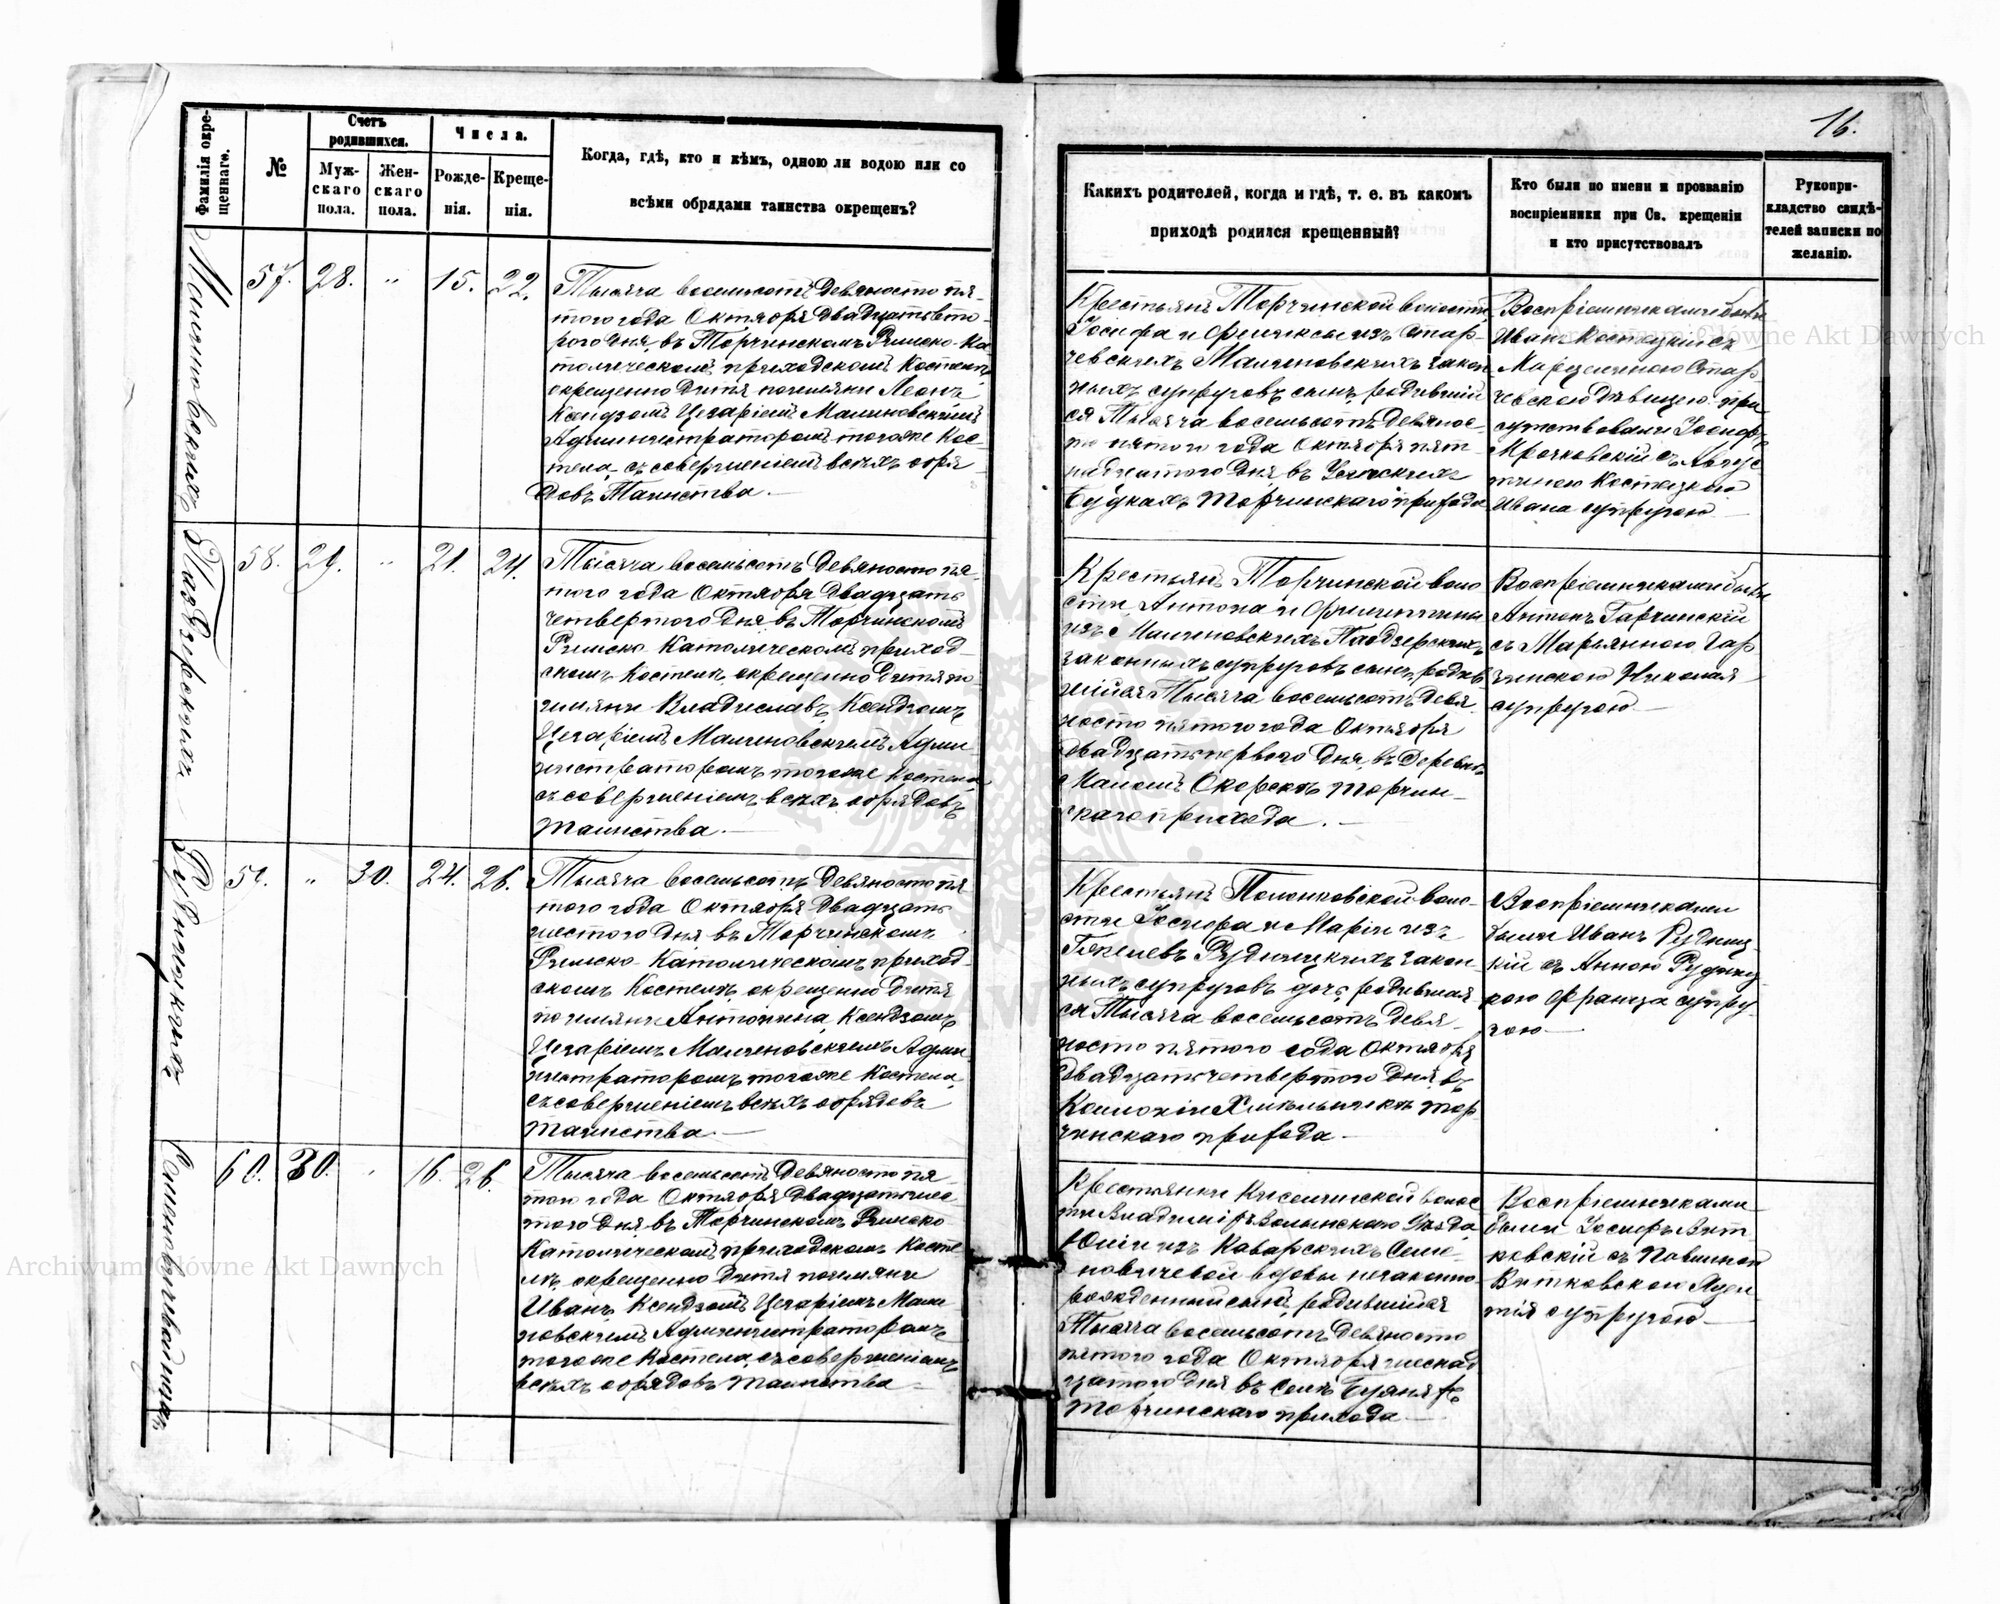 16.
Фамилія окре-
щеннаго.
№
Счетъ
родившихся.
Муж-
скаго
пола.
Жен-
скаго
пола.
Числа.
Рожде-
нія.
Креще-
нія.
Когда, гдѣ, кто и кѣмъ, одною ли водою или со
всѣми обрядами таинства окрещенъ?
Какихъ родителей, когда и гдѣ, т. е. въ какомъ
приходѣ родился крещенный?
Кто были по имени и прозванію
воспріемники при Св. крещеніи
и кто присутствовалъ
Рукопри-
кладство свидѣ-
телей записки по
желанію.
Малиновскихъ
57. 28. „ 15. 22.
Тысяча восемьсотъ девяносто пя-
того года Октября двадцать вто-
рого дня, въ Торчинскомъ Римско-Ка-
толическомъ приходскомъ Костелѣ,
окрещено дитя по имяни Леонъ,
Ксендзомъ Цезаріемъ Малиновскимъ
Администраторомъ тогоже Кос-
тела, съ совершеніемъ всѣхъ обря-
довъ Таинства.
Крестьянъ Торчинской волости,
Іосифа и Феликсы изъ Стар-
чевскихъ Малиновскихъ закон-
ныхъ супруговъ сынъ, родившій-
ся Тысяча восемьсотъ девянос-
то пятого года Октября пят-
надцатого дня, въ
Будкахъ Торчинскаго прихода
Воспріемниками были
Иванъ съ
Марцелиною Стар-
чевскою дѣвицею. при-
сутствовали Іосифъ
Мрочковскій съ Авгус-
тиною
Ивана супругою
58. 29. „ 21. 24.
Тысяча восемьсотъ девяносто пя-
того года Октября двадцать
четвертого дня въ Торчинскомъ
Римско-Католическомъ приход-
скомъ Костелѣ, окрещено дитя по-
имяни Владиславъ, Ксендзомъ
Цезаріемъ Малиновскимъ Адми-
нистраторомъ тогоже Костела,
съ совершеніемъ всѣхъ обрядовъ
таинства.
Крестьянъ Торчинской воло-
сти, Антона и
изъ Малиновскихъ
законныхъ супруговъ сынъ, родив-
шійся Тысяча восемьсотъ девя-
носто пятого года Октября
двадцать первого дня, въ деревнѣ
Маломъ Окорскѣ Торчин-
скаго прихода.
Воспріемниками были
Антонъ Гарчинскій
съ Марьянною Гар-
чинскою Николая
супругою
Рудницкихъ
59. „ 30. 24. 26.
Тысяча восемьсотъ девяносто пя-
того года Октября двадцать
шестого дня въ Торчинскомъ
Римско-Католическомъ приход-
скомъ Костелѣ, окрещено дитя
по имяни Антонина, Ксендзомъ
Цезаріемъ Малиновскимъ Адми-
нистраторомъ тогоже Костела,
съ совершеніемъ всѣхъ обрядовъ
таинства.
Крестьянъ Полонковской воло-
сти Іосифа и Маріи изъ
Рудницкихъ закон-
ныхъ супруговъ дочь, родившая-
ся Тысяча восемьсотъ девя-
носто пятого года Октября
двадцать четвертого дня, въ
Колоніи Хмѣльникѣ Тор-
чинскаго прихода.
Воспріемниками
были Иванъ Рудниц-
кій съ Анною Рудниц-
кою Франца супру-
гою
60. 30. „ 16. 26.
Тысяча восемьсотъ девяносто пя-
того года Октября двадцать шес-
того дня, въ Торчинскомъ Римско-
Католическомъ приходскомъ Косте-
лѣ, окрещено дитя по имяни
Иванъ, Ксендзомъ Цезаріемъ Мали-
новскимъ Администраторомъ
тогоже Костела, съ совершеніемъ
всѣхъ обрядовъ таинства
Крестьянки Киселинской волос-
ти Владиміръ Волынского Уѣзда,
Юліи изъ Каварскихъ Семе-
новичевой вдовы незаконно-
рожденный сынъ, родившійся
Тысяча восемьсотъ девяносто
пятого года Октября шестнад-
цатого дня въ селѣ
Торчинскаго прихода
Воспріемниками
были Іосифъ Вит-
ковскій съ Павлиною
Витковскою
супругою
Archiwum Główne Akt Dawnych
Archiwum Główne Akt Dawnych